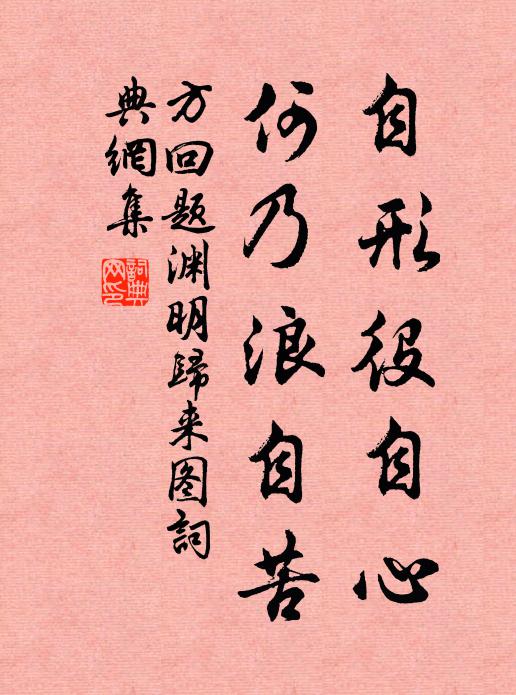 自形役自心
何乃浪自苦
方回题渊明歸来图詞
典網集
詞典网印